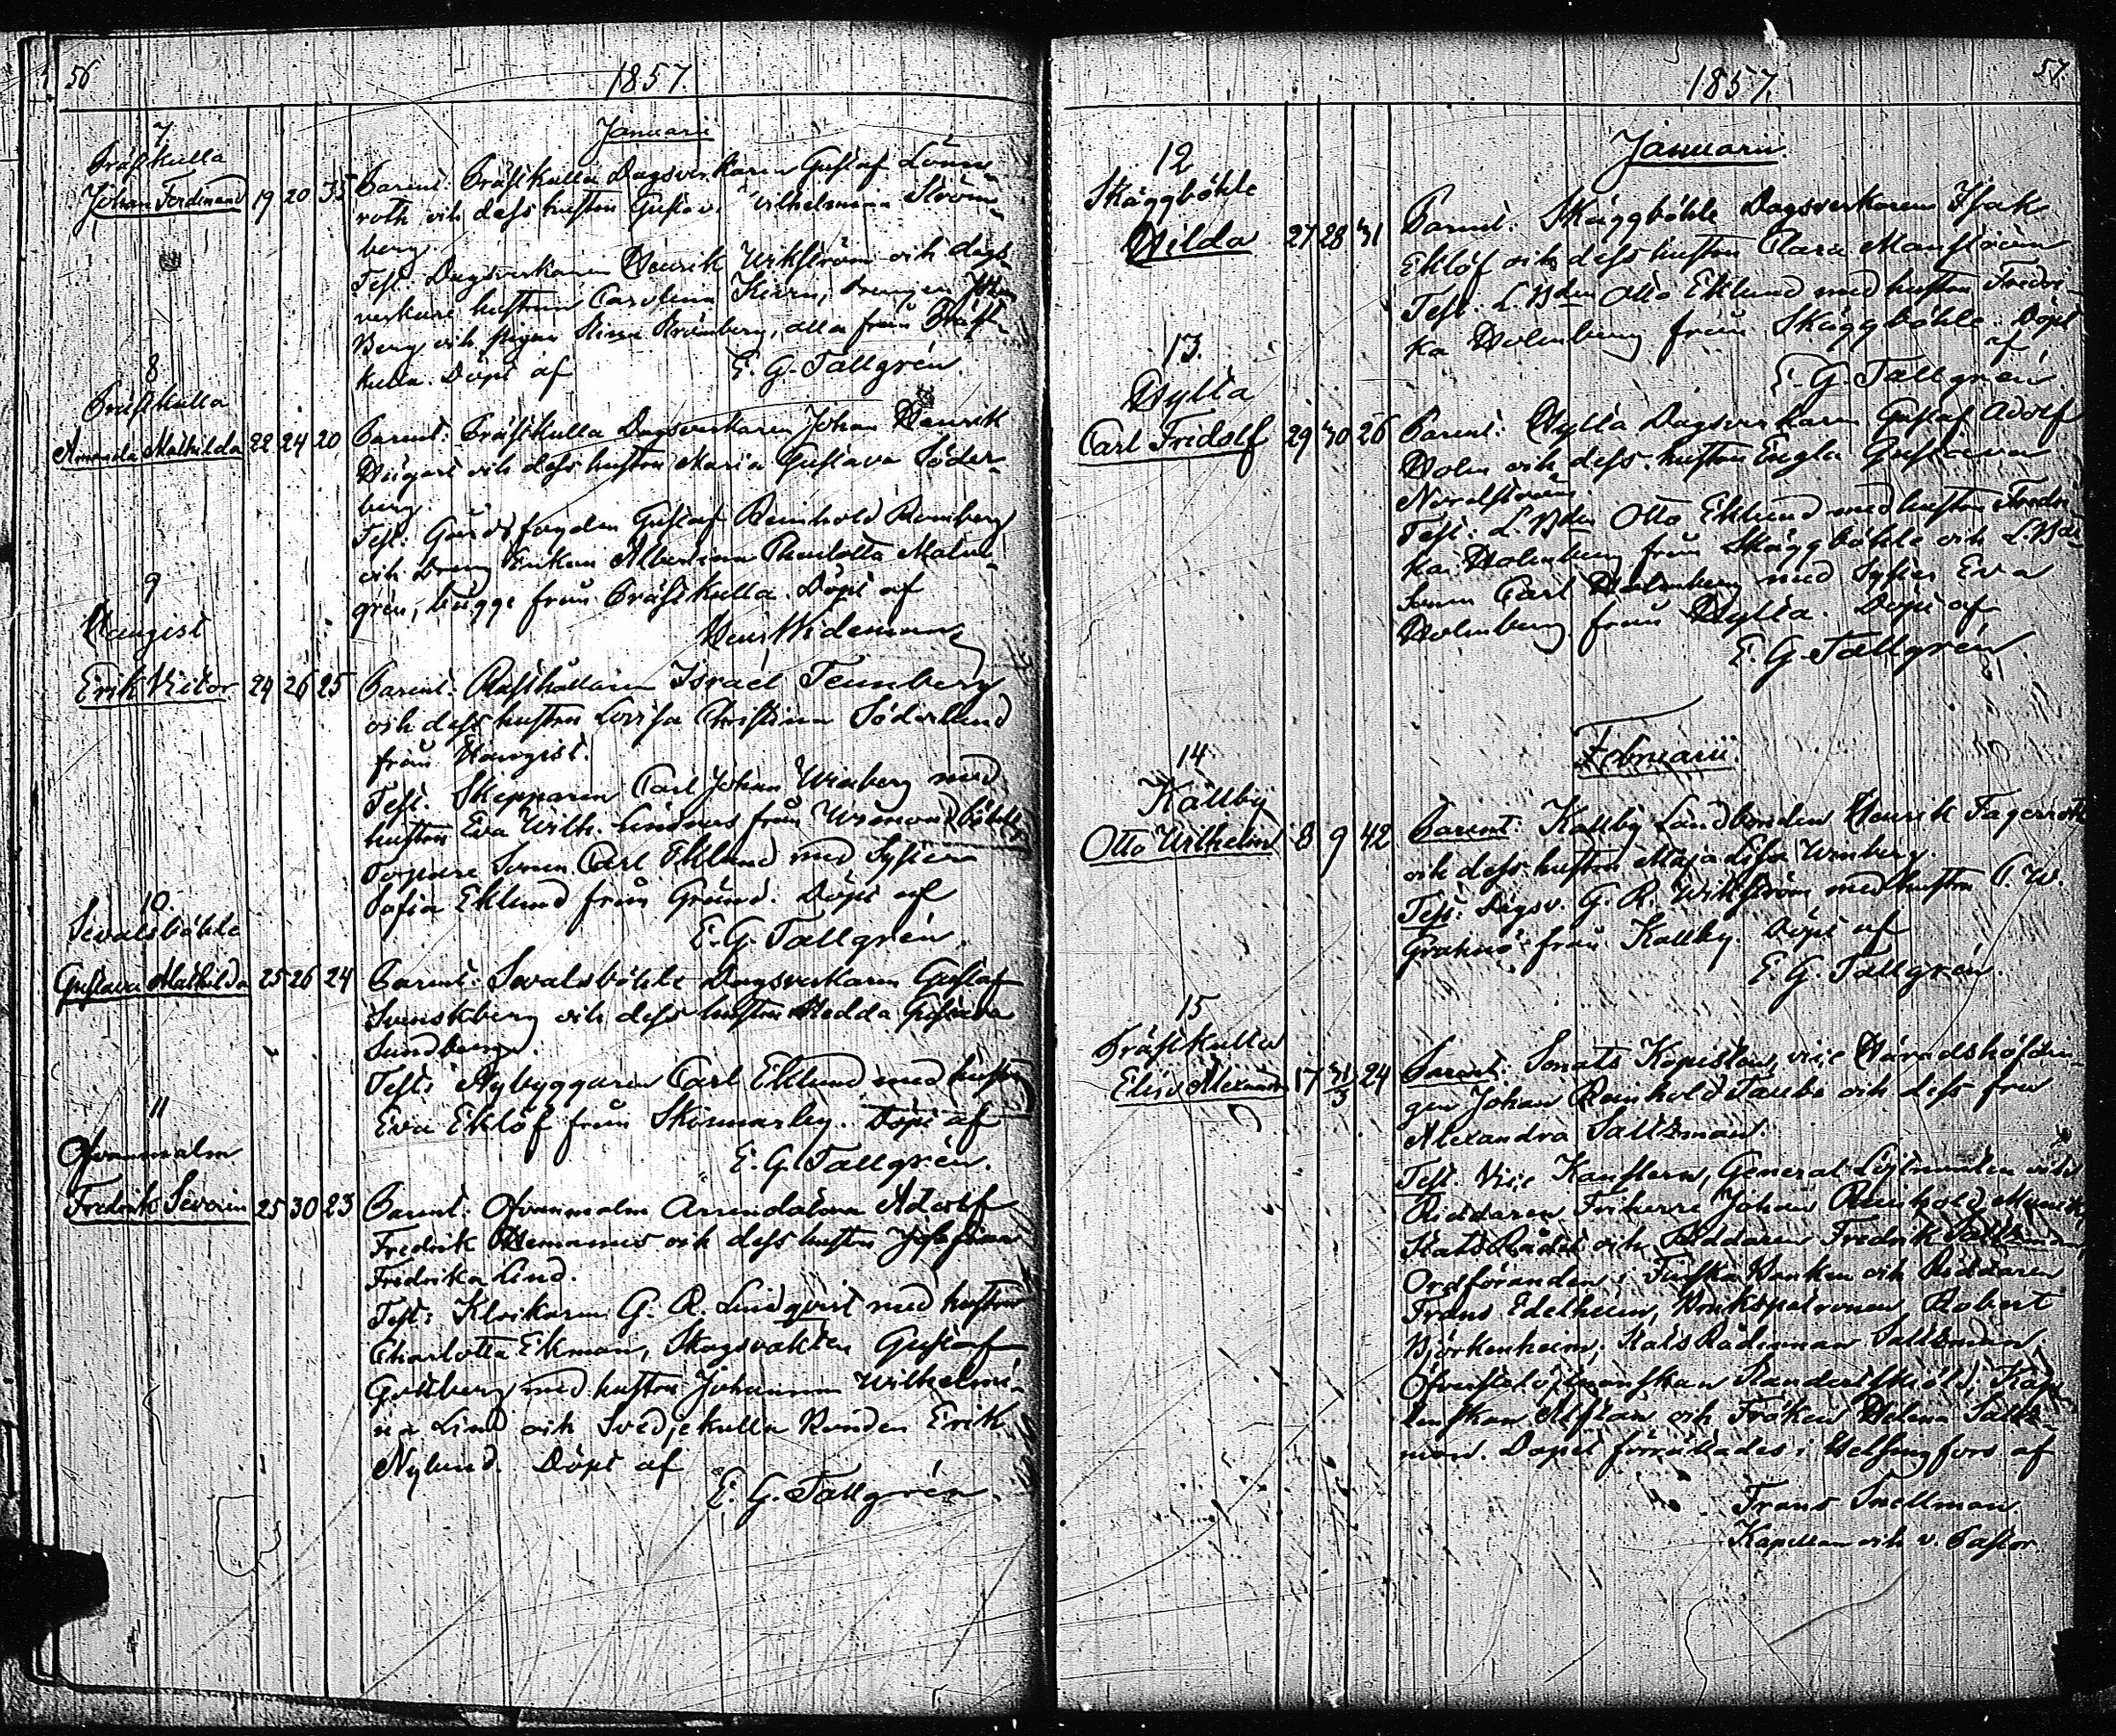 56
1857.
Januarii
7
Präskulla
Johan Ferdinand 19 20 35
Parent: Präskulla Dagsverkaren Gustaf Lönn-
roth och dess hustru Gustava Vilhelmina Ström-
berg.
Test. Dagsverkaren Henrik Wikström och dags-
verkare hustrun Carolina drengen Johan
Berg och pigan Stina Strömberg, alla från Präst-
kulla. Döpt af E. G. Tallgrén.
8
Prästkulla
Amanda Mathilda 22 24 20
Parent: Prästkulla Dagsverkaren Johan Henrik
och dess hustru Maria Gustava Söder-
berg.
Test: Gårdsfogden Gustaf Reinhold Romberg
och Enkan Albertina Charlotta Malm-
grén, begge från Prästkulla. Döpt af
Widemann
9
Hangist
Erik Victor 24 26 25
Parent: Rusthållaren Israel Tennberg
och dess hustru Lovisa Christina Söderlund
från Hangist.
Test. Skepparen Carl Johan Winberg med
hustru Eva Wilh. Lindroos från
Torpare Sonen Carl Eklund med Syster
Sofia Eklund från Gränd. Döpt af
E. G. Tallgrén.
10.
Sevalsböhle
Gustava Mathilda 25 26 24
Parent: Sevalsböhle Dagsverkaren Gustaf
Svenskberg och dess hustru Hedda Gustava
Sundberg.
Test: Nybyggaren Carl Eklund med hustru
Eva Eklöf från Skärmarby. Döpt af
E. G. Tallgrén.
11
Ofvanmalm
Fredrik Severin 25 30 23
Parent: Ofvanmalm Arrendatorn Adolf
Fredrik Hemanus och dess hustru Josefina
Fredrika Lind.
Test: Klockaren G. R. Lindqvist med hustru
Charlotta Ekman, Skogsvakten Gustaf
Gottberg med hustru Johanna Wilhelmi-
na Lind och Svedjekulla Bonden Erik
Nylund. Döpt af
E. G. Tallgrén.
57.
1857.
Januarii.
12
Skäggböhle
Hilda 27 28 31
Parent: Skäggböhle Dagsverkaren Isak
Eklöf och dess hustru Clara Manström
Test: L. Bden Otto Eklund med hustru Fredri-
ka Holmberg från Skäggböhle. Döpt
af
E. G. Tallgrén
13.
Hylta
Carl Fridolf 29 30 26
Parent: Hylta Dagsverkaren Gustaf Adolf
Holm och dess hustru Engla Gustava
Nordström.
Test: L. Bden Otto Eklund med hustru Fredri-
ka Holmberg från Skäggböhle och L. Bde
Sonen Carl Holmberg med Syster Eva
Holmberg från Hylta. Döpt af
E. G. Tallgrén.
Februarii.
14.
Källby
Otto Wilhelm 8 9 42
Parent: Källby Landbonden Henrik Fagerroth
och dess hustru Maja Lisa Winberg.
Test: Dagsv. G. R. Wikström med hustru C. W.
Granroo från Källby. Döpt af
E. G. Tallgrén.
15
Prästkulla
Elis Alexander 17 31/3 24
Parent: Senats Kopisten, vice Häradshöfdin-
gen Johan Reinhold Taube och dess fru
Alexandra Saltzman.
Test. Vice Kanslern, General Löjtnanten och
Riddaren Friherre Johan Reinhold Munck,
Stats Rådet och Riddaren Fredrik Saltzman,
Ordföranden i Finska Banken och Riddaren
Frans Edelheim, Brukspatronen Robert
Björkenheim, Stats Rådinnan Saltzman,
Öfverstelöjtnanskan Standertskjöld,
och Fröken Helena Saltz-
man. Dopet förrättades i Helsingfors af
Frans Snellman
Kapellan och v. Pastor